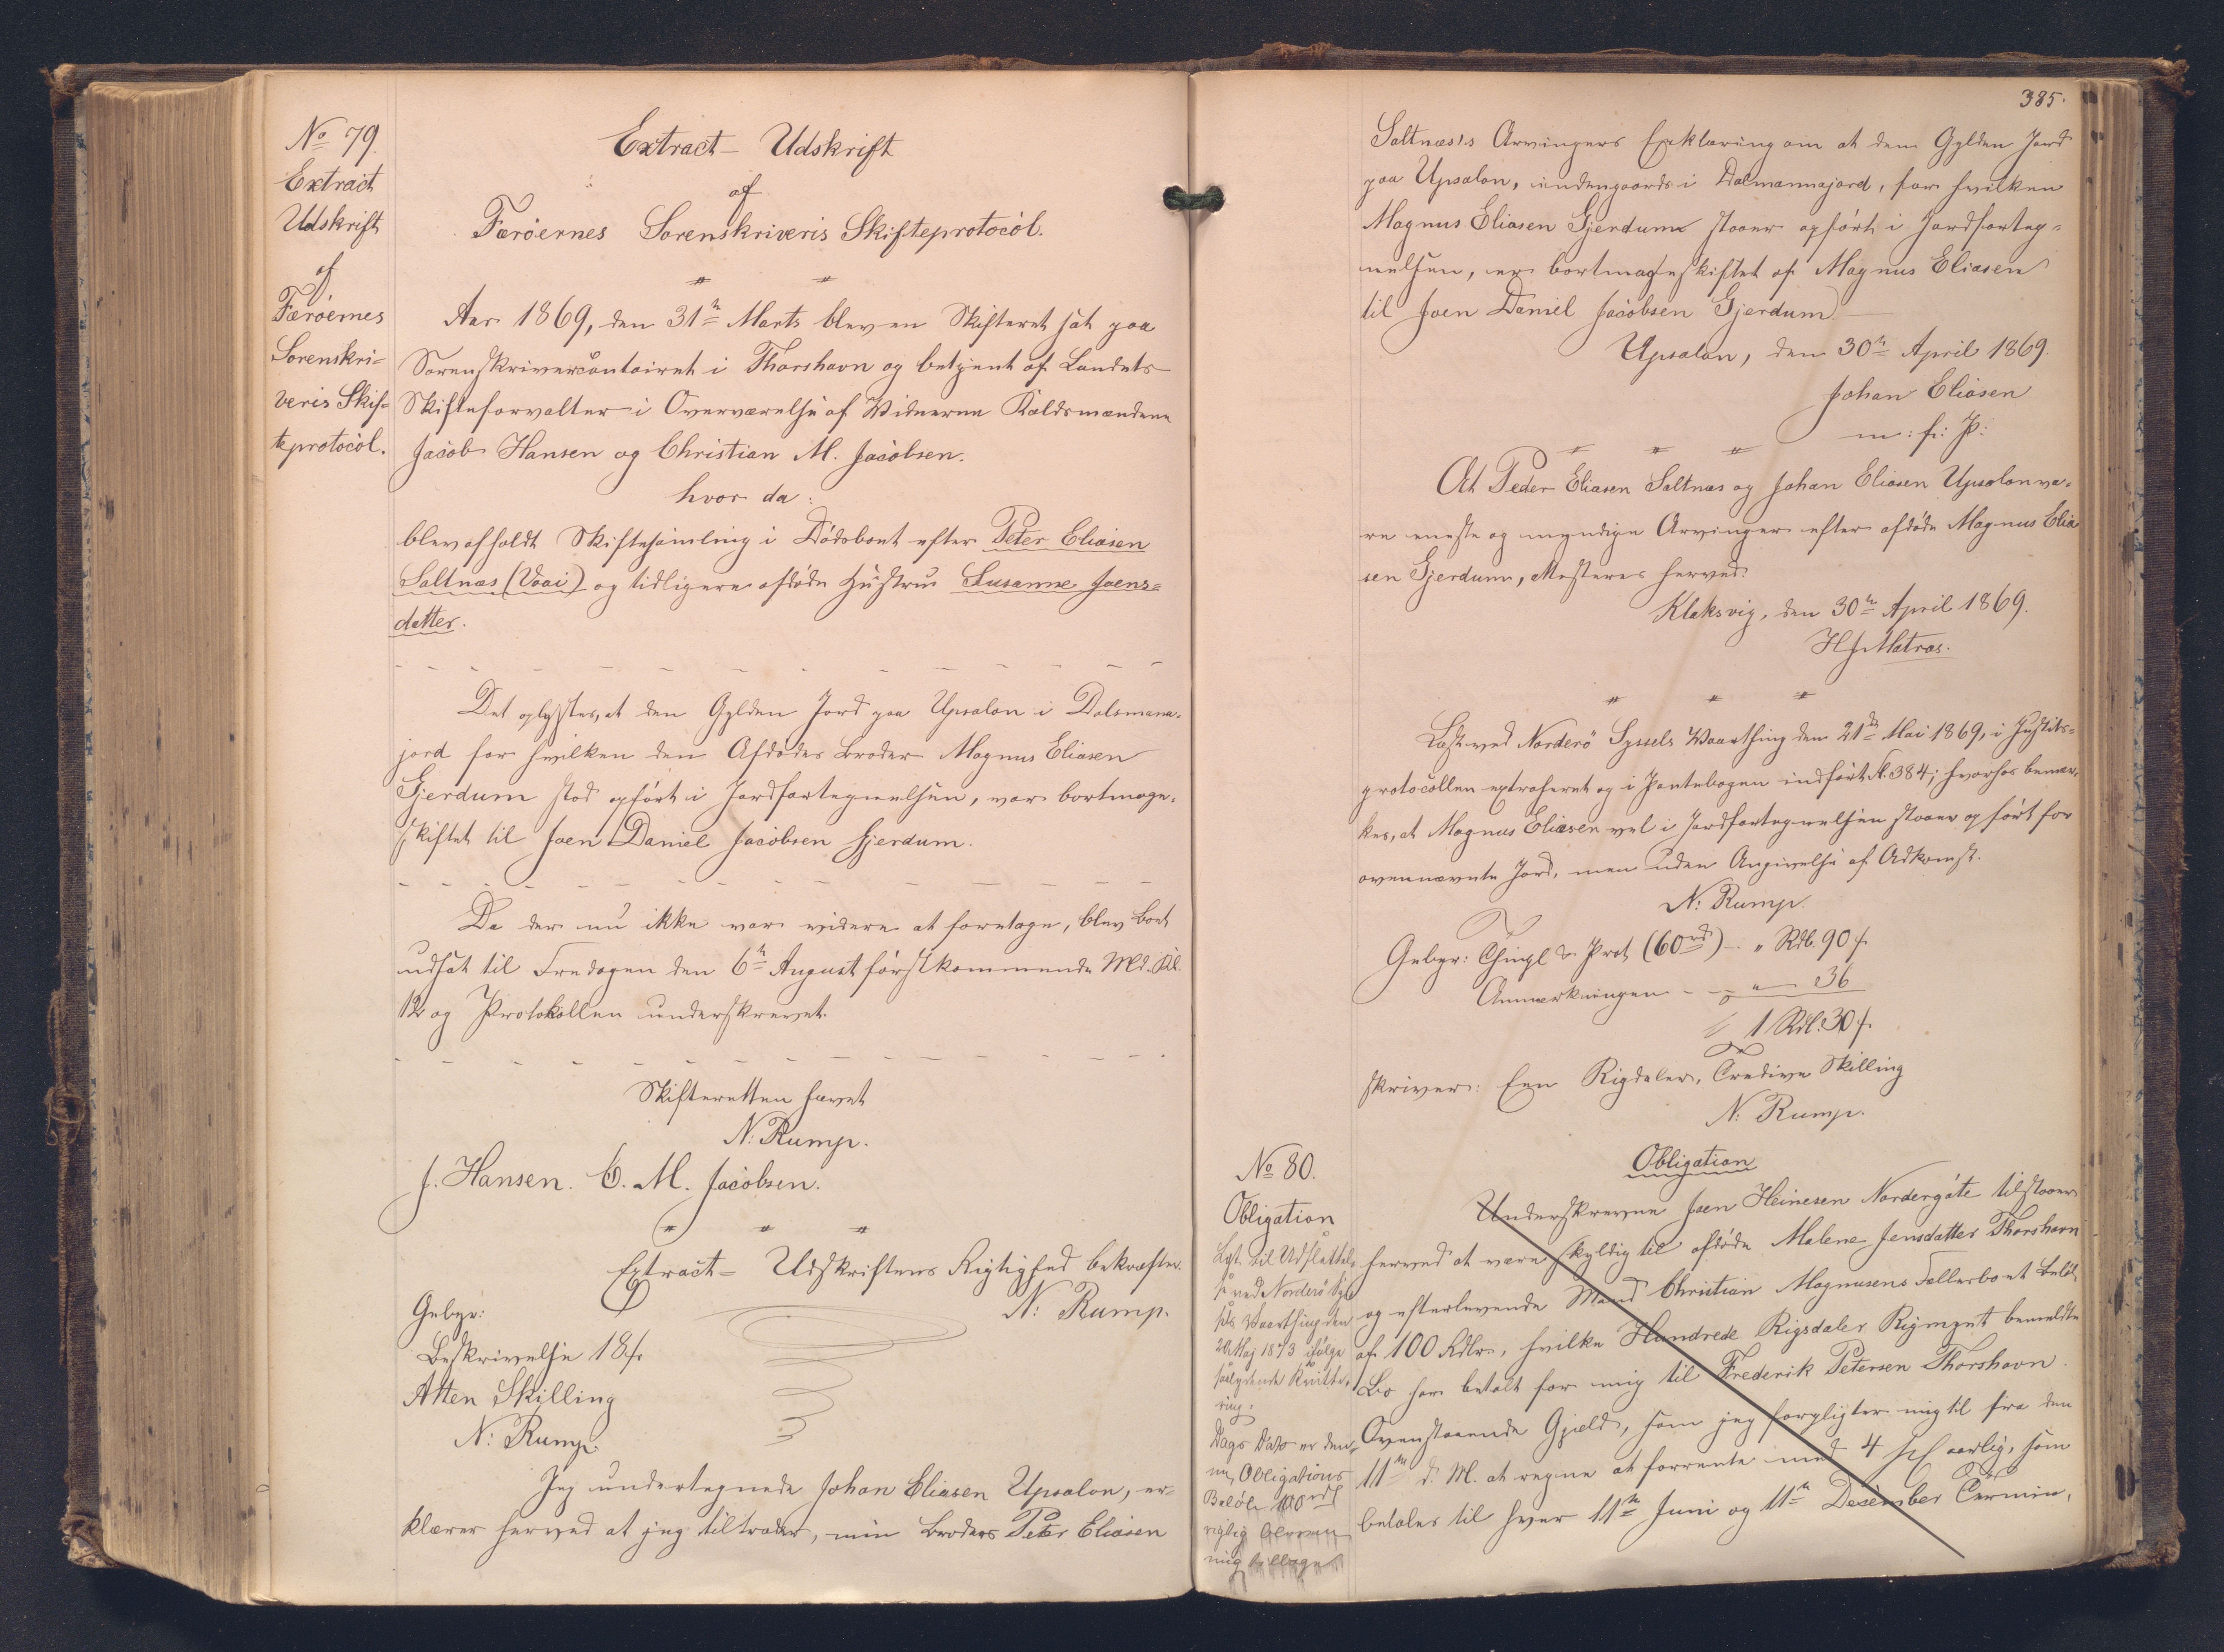 No 79.
Extract
Udskrift
af
Færöernes
Sorenskri=
veris Skif=
teprotocol.
Extract- Udskrift
af
Færöernes Sorenskriveris Skifteprotocol.
Aar 1869, den 31te Marts blev en Skifteret sat paa
Sorenskrivercontoiret i Thorshavn og betjent af Landets
Skifteforvalter i Overværelse af Vidnerne Kaldsmændene
Jacob Hansen og Christian M. Jacobsen.
hvor da:
blev afholdt Skiftesamling i Dödsboet efter Peter Eliasen
Saltnæs (Vaai) og tidligere afdöde Hustru Susanne Joens=
datter.
Det oplystes, at den Gylden Jord paa Upsalon i Dalsmana=
jord for hvilken den Afdödes Broder Magnus Eliasen
Gjerdum stod opfört i Jordfortegnelsen, var bortmage=
skiftet til Joen Daniel Jacobsen Gjerdum.
Da der nu ikke var videre at foretage, blev Boet
udsat til Fredagen den 6te August förstkommende Md. Kl.
12 og Protokollen underskrevet.
Skifteretten hævet
N: Rump.
J. Hansen. C. M. Jacobsen.
Extract- Udskriftens Rigtighed bekræftes.
N: Rump.
Gebyr:
Beskrivelse 18 s.
Atten Skilling
N: Rump.
Jeg undertegnede Johan Eliasen Upsalon, er=
klærer herved at jeg tiltræder, min Broders Peter Eliasen
385.
Saltnæs's Arvingers Erklæring om at den Gylden Jord
paa Upsalon, indengaards i Dalmannajord, for hvilken
Magnus Eliasen Gjerdum staaer opfört i Jordforteg=
nelsen, er bortmageskiftet af Magnus Eliasen
til Joen Daniel Jacobsen Gjerdum.
Upsalon, den 30te April 1869.
Johan Eliasen
m: f: P:
At Peder Eliasen Saltnæs og Johan Eliasen Upsalon va=
re eneste og myndige Arvinger efter afdöde Magnus Elia
sen Gjerdum, attesteres herved.
Klaksvig, den 30te April 1869.
H J Matras.
Læst ved Norderö Syssels Vaarthing den 21de Mai 1869, i Justits=
protocollen extraheret og i Pantebogen indfört Fol. 384; hvorhos bemær=
kes, at Magnus Eliasen vel i Jordfortegnelsen staaer opfört for
ovennævnte Jord, men uden Angivelse af Adkomst.
N: Rump.
Gebyr: Thingl & Prot (60rd) - " Rdl. 90 s.
Anmærkningen - - " - 36
1 Rdl. 30 s.
skriver: Een Rigdaler, Tredive Skilling
N: Rump.
No 80.
Obligation
Lyst til Udslettel=
se ved Norderö Sys=
sels Vaarthing den
20 Maj 1873 ifölge
saalydende Kvitte=
ring:
Dags Dato er den=
ne Obligations
Belöb 100 rdl
rigtig
mig
Obligation
Underskrevne Joen Heinesen Nordergöte tilstaaer
herved at være skyldig til afdöde Malene Jensdatter Thorshavn
og efterlevende Mand Christian Magnusens Fællesboet Belöb
af 100 Rdlr., hvilke Hundrede Rigsdaler Rigmynt bemeldte
Bo har betalt for mig til Frederik Petersen Thorshavn.
Ovenstaaende Gjæld, som jeg forpligter mig til fra den
11te d. M. at regne at forrente med 4 pCt aarlig, som
betales til hver 11te Juni og 11te December Termin,